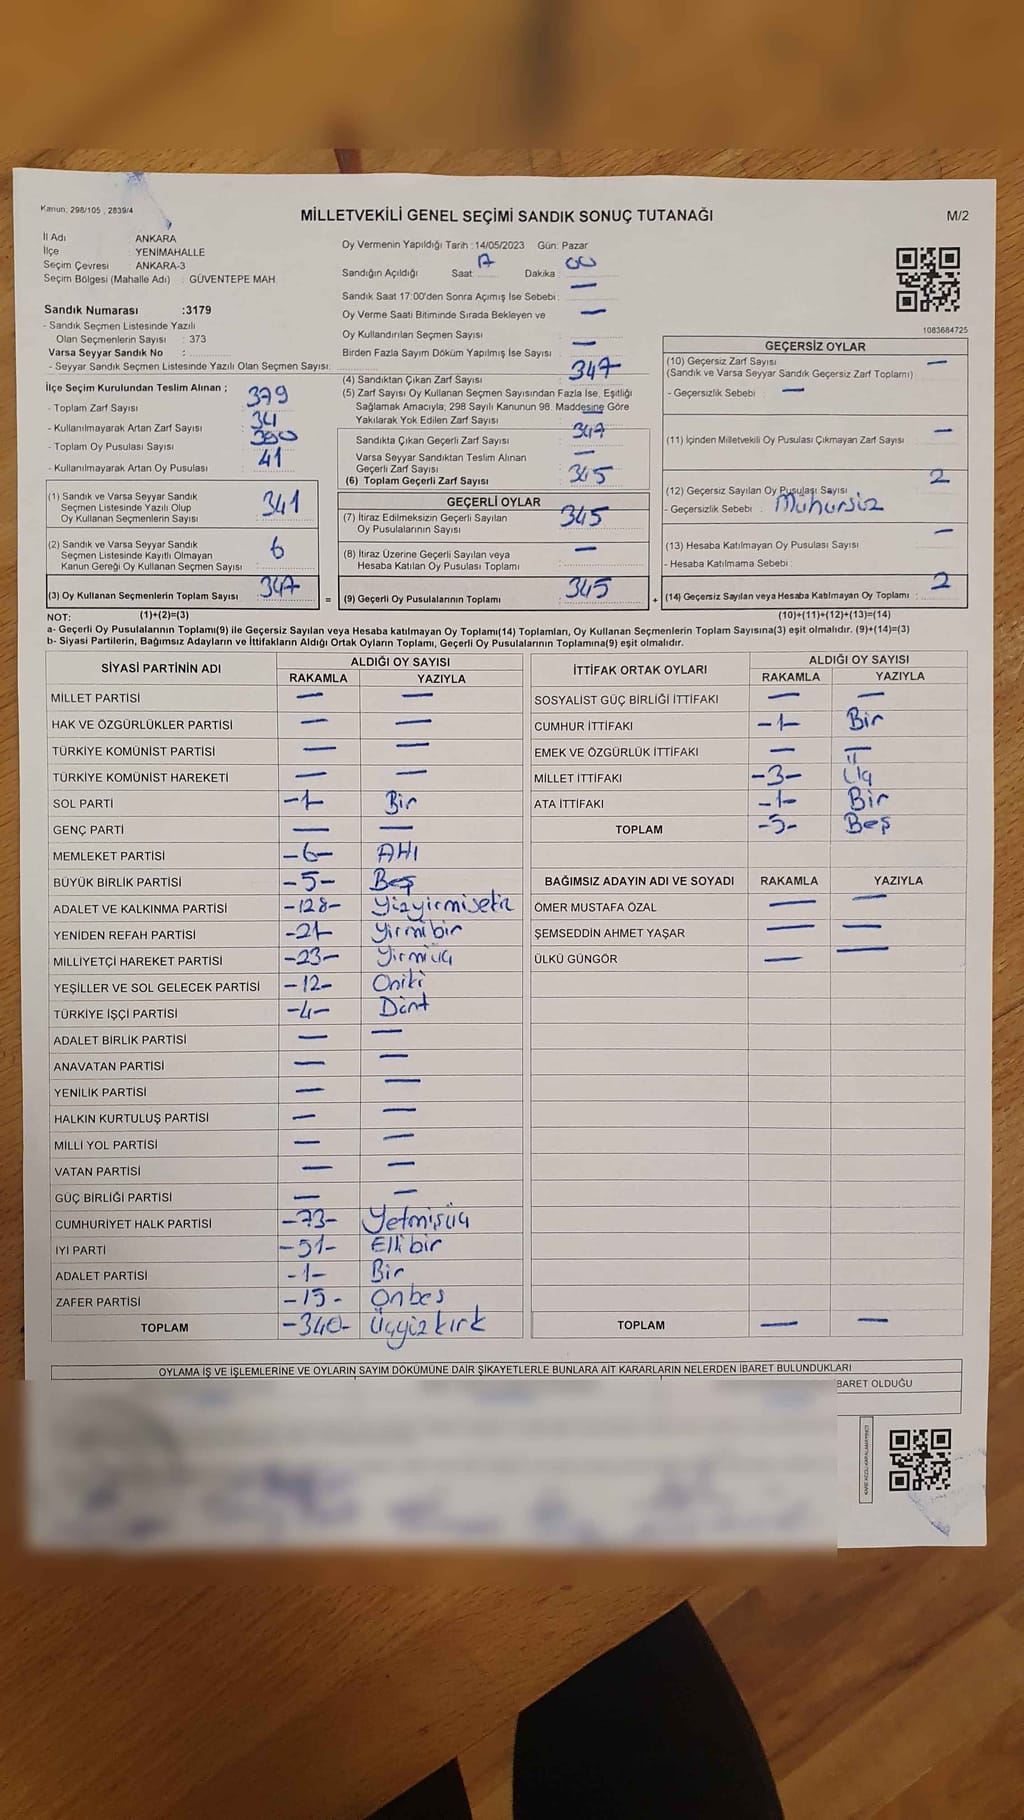 Kanun; 298/105 , 2839/4
MİLLETVEKİLİ GENEL SEÇİMİ SANDIK SONUÇ TUTANAĞI
M/2
İl Adı : ANKARA
İlçe : YENİMAHALLE
Seçim Çevresi : ANKARA-3
Seçim Bölgesi (Mahalle Adı) : GÜVENTEPE MAH.
Sandık Numarası :3179
- Sandık Seçmen Listesinde Yazılı
Olan Seçmenlerin Sayısı : 373
Varsa Seyyar Sandık No :
- Seyyar Sandık Seçmen Listesinde Yazılı Olan Seçmen Sayısı:
İlçe Seçim Kurulundan Teslim Alınan ;
- Toplam Zarf Sayısı : 379
- Kullanılmayarak Artan Zarf Sayısı : 34
- Toplam Oy Pusulası Sayısı : 380
- Kullanılmayarak Artan Oy Pusulası : 41
(1) Sandık ve Varsa Seyyar Sandık
Seçmen Listesinde Yazılı Olup
Oy Kullanan Seçmenlerin Sayısı : 341
(2) Sandık ve Varsa Seyyar Sandık
Seçmen Listesinde Kayıtlı Olmayan
Kanun Gereği Oy Kullanan Seçmen Sayısı : 6
(3) Oy Kullanan Seçmenlerin Toplam Sayısı : 347
Oy Vermenin Yapıldığı Tarih : 14/05/2023 Gün: Pazar
Sandığın Açıldığı Saat : 17 Dakika : 00
Sandık Saat 17:00'den Sonra Açımış İse Sebebi : —
Oy Verme Saati Bitiminde Sırada Bekleyen ve
Oy Kullandırılan Seçmen Sayısı : —
Birden Fazla Sayım Döküm Yapılmış İse Sayısı : —
(4) Sandıktan Çıkan Zarf Sayısı : 347
(5) Zarf Sayısı Oy Kullanan Seçmen Sayısından Fazla İse, Eşitliği
Sağlamak Amacıyla; 298 Sayılı Kanunun 98. Maddesine Göre
Yakılarak Yok Edilen Zarf Sayısı : —
Sandıkta Çıkan Geçerli Zarf Sayısı : 347
Varsa Seyyar Sandıktan Teslim Alınan
Geçerli Zarf Sayısı : —
(6) Toplam Geçerli Zarf Sayısı : 345
GEÇERLİ OYLAR
(7) İtiraz Edilmeksizin Geçerli Sayılan
Oy Pusulalarının Sayısı : 345
(8) İtiraz Üzerine Geçerli Sayılan veya
Hesaba Katılan Oy Pusulası Toplamı : —
= (9) Geçerli Oy Pusulalarının Toplamı : 345
1083684725
GEÇERSİZ OYLAR
(10) Geçersiz Zarf Sayısı : —
(Sandık ve Varsa Seyyar Sandık Geçersiz Zarf Toplamı)
- Geçersizlik Sebebi : —
(11) İçinden Milletvekili Oy Pusulası Çıkmayan Zarf Sayısı : —
(12) Geçersiz Sayılan Oy Pusulası Sayısı : 2
- Geçersizlik Sebebi : Mühürsüz
(13) Hesaba Katılmayan Oy Pusulası Sayısı : —
- Hesaba Katılmama Sebebi :
+ (14) Geçersiz Sayılan veya Hesaba Katılmayan Oy Toplamı : 2
NOT: (1)+(2)=(3) (10)+(11)+(12)+(13)=(14)
a- Geçerli Oy Pusulalarının Toplamı(9) ile Geçersiz Sayılan veya Hesaba katılmayan Oy Toplamı(14) Toplamları, Oy Kullanan Seçmenlerin Toplam Sayısına(3) eşit olmalıdır. (9)+(14)=(3)
b- Siyasi Partilerin, Bağımsız Adayların ve İttifakların Aldığı Ortak Oyların Toplamı, Geçerli Oy Pusulalarının Toplamına(9) eşit olmalıdır.
SİYASİ PARTİNİN ADI ALDIĞI OY SAYISI
RAKAMLA YAZIYLA
MİLLET PARTİSİ — —
HAK VE ÖZGÜRLÜKLER PARTİSİ — —
TÜRKİYE KOMÜNİST PARTİSİ — —
TÜRKİYE KOMÜNİST HAREKETİ — —
SOL PARTİ -1- Bir
GENÇ PARTİ — —
MEMLEKET PARTİSİ -6- Altı
BÜYÜK BİRLİK PARTİSİ -5- Beş
ADALET VE KALKINMA PARTİSİ -128- Yüzyirmisekiz
YENİDEN REFAH PARTİSİ -21- Yirmibir
MİLLİYETÇİ HAREKET PARTİSİ -23- Yirmiüç
YEŞİLLER VE SOL GELECEK PARTİSİ -12- Oniki
TÜRKİYE İŞÇİ PARTİSİ -4- Dört
ADALET BİRLİK PARTİSİ — —
ANAVATAN PARTİSİ — —
YENİLİK PARTİSİ — —
HALKIN KURTULUŞ PARTİSİ — —
MİLLİ YOL PARTİSİ — —
VATAN PARTİSİ — —
GÜÇ BİRLİĞİ PARTİSİ — —
CUMHURİYET HALK PARTİSİ -73- Yetmişüç
İYİ PARTİ -51- Ellibir
ADALET PARTİSİ -1- Bir
ZAFER PARTİSİ -15- Onbeş
TOPLAM -340- Üçyüzkırk
İTTİFAK ORTAK OYLARI ALDIĞI OY SAYISI
RAKAMLA YAZIYLA
SOSYALİST GÜÇ BİRLİĞİ İTTİFAKI — —
CUMHUR İTTİFAKI -1- Bir
EMEK VE ÖZGÜRLÜK İTTİFAKI — —
MİLLET İTTİFAKI -3- Üç
ATA İTTİFAKI -1- Bir
TOPLAM -5- Beş
BAĞIMSIZ ADAYIN ADI VE SOYADI RAKAMLA YAZIYLA
ÖMER MUSTAFA ÖZAL — —
ŞEMSEDDİN AHMET YAŞAR — —
ÜLKÜ GÜNGÖR — —
TOPLAM — —
OYLAMA İŞ VE İŞLEMLERİNE VE OYLARIN SAYIM DÖKÜMÜNE DAİR ŞİKAYETLERLE BUNLARA AİT KARARLARIN NELERDEN İBARET BULUNDUKLARI
BARET OLDUĞU